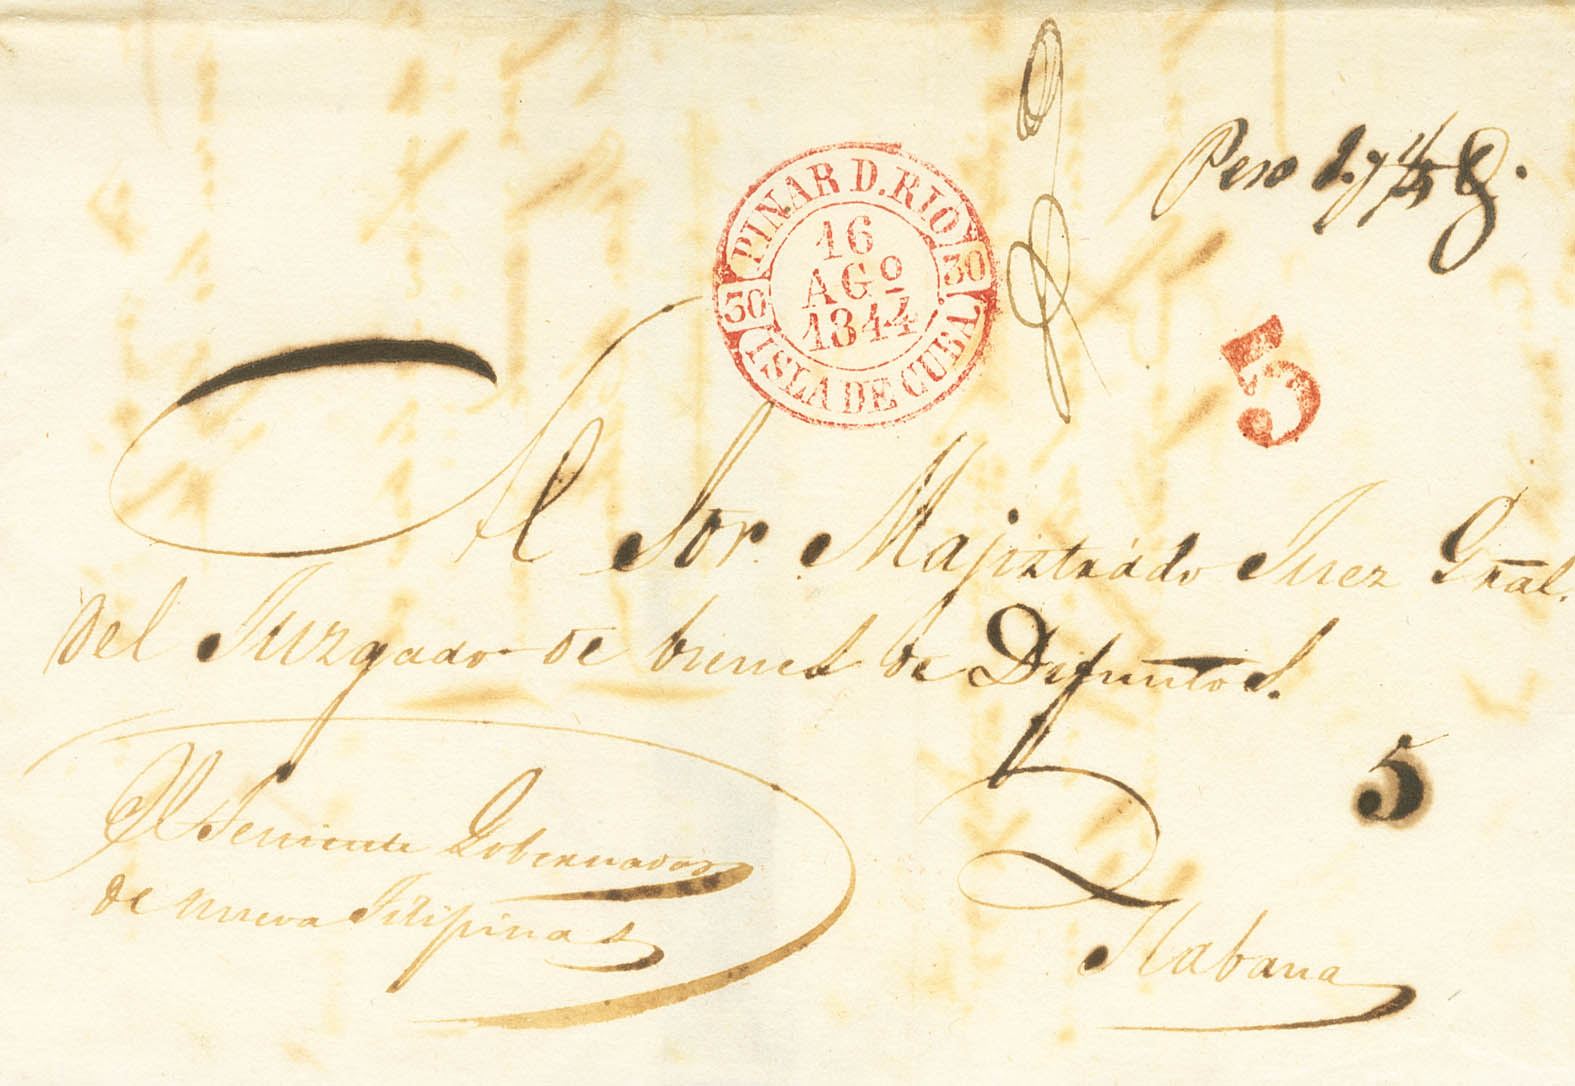 Peso 2 y 1/2
PINAR D. RIO
30 30
16
AGº
1844
ISLA DE CUBA
5
Al Sor. Majistrádo Juez Gral.
del Juzgado de bienes de Difuntos.
5
El Teniente Gobernador
de nueva Filipinas
Habana